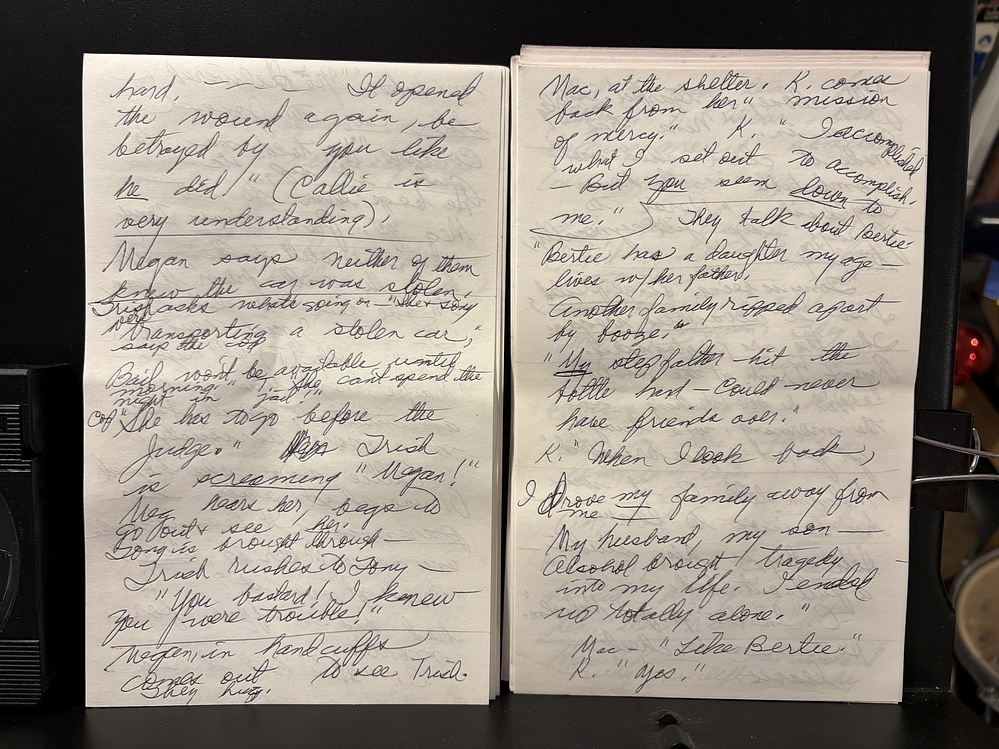 hard. — It opened
the wound again, be
betrayed by you like
he did" (Callie is
very understanding).
Megan says neither of them
knew the car was stolen.
Trish asks whats going on "She & Tony
were
transporting a stolen car,"
says the cop
Bail won't be available until
morning." T. "She can't spend the
night in jail!"
Cop "She has to go before the
Judge." Trish
is screaming "Megan!"
Meg hears her, begs to
go out & see her.
Tony is brought through —
Trish rushes to Tony —
"You bastard! I knew
you were trouble!"
Megan, in handcuffs
comes out to see Trish.
They hug.
Mac, at the shelter. K. comes
back from her "mission
of mercy." K. "I accomplished
what I set out to accomplish.
— But you seem down to
me." They talk about Bertie.
"Bertie has a daughter my age —
lives w/ her father.
Another family ripped apart
by booze."
"My stepfather — hit the
bottle hard — could never
have friends over."
K. "When I look back,
I drove my family away from
me —
My husband, my son —
Alcohol brought tragedy
into my life. I ended
up totally alone."
Mac — "Like Bertie."
K. "Yes."